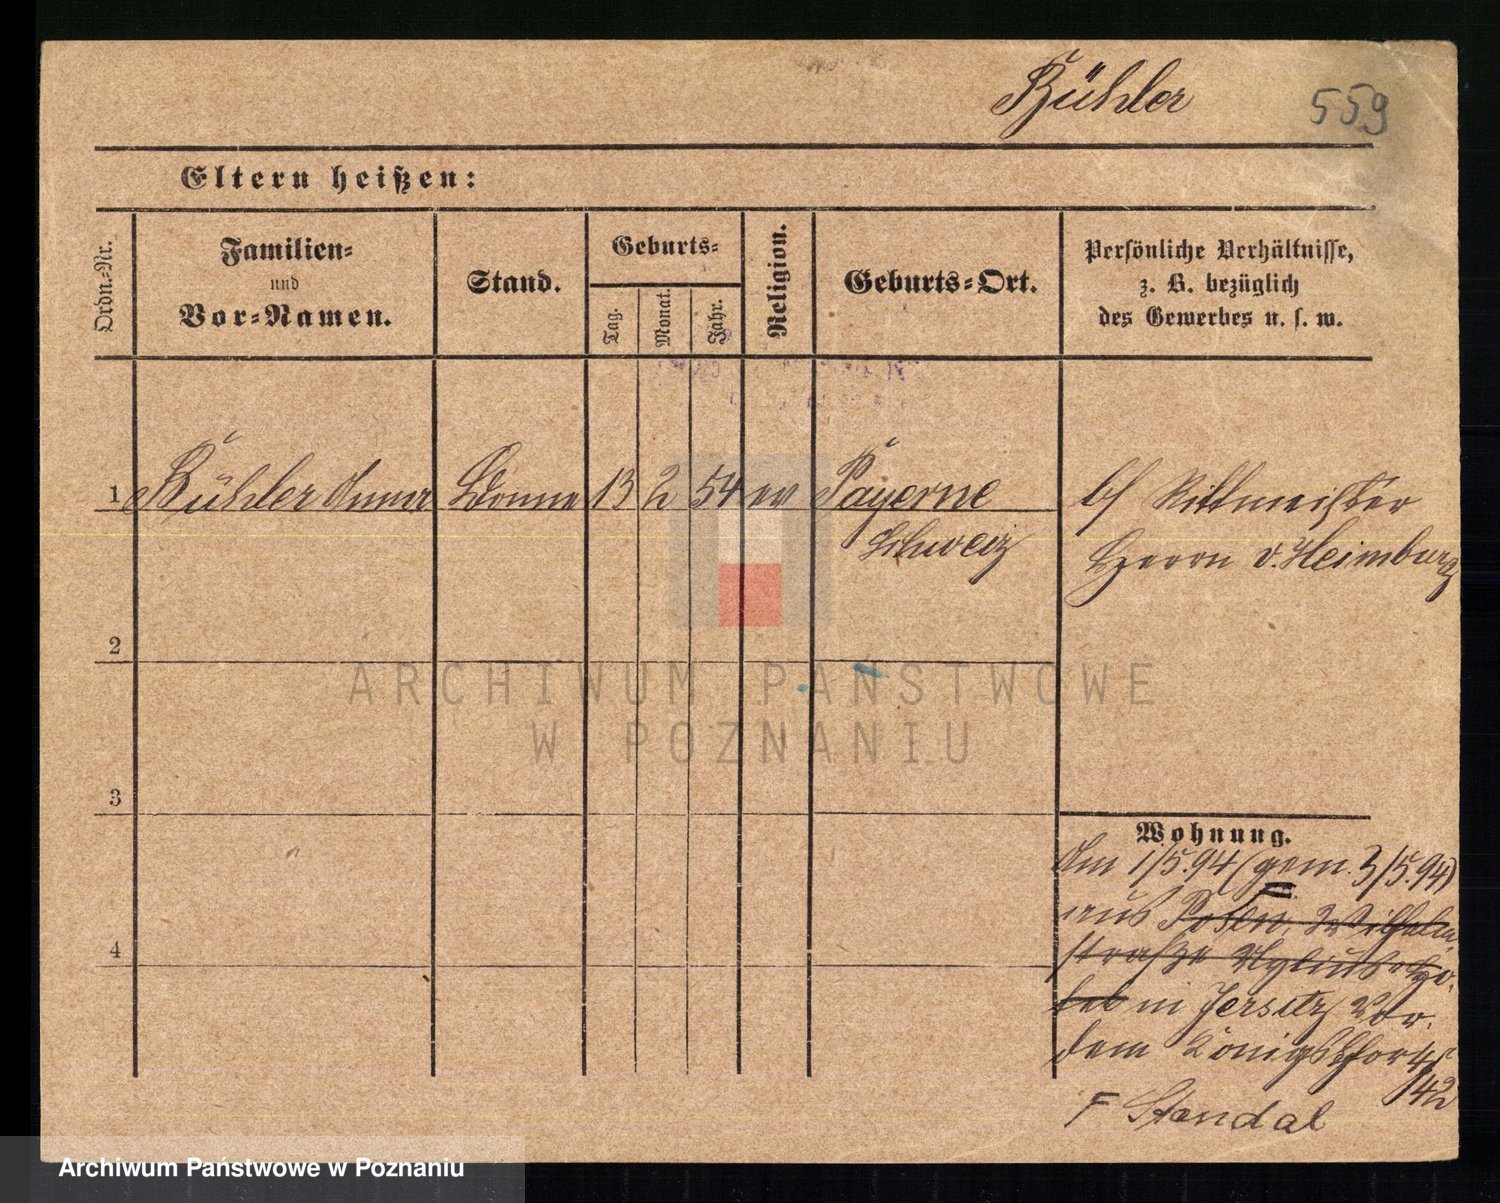 Bühler
559
Eltern heißen:
Ordn.-Nr.
Familien-
und
Vor-Namen.
Stand.
Geburts-
Tag.
Monat.
Jahr.
Religion.
Geburts-Ort.
Persönliche Verhältnisse,
z. B. bezüglich
des Gewerbes u. s. w.
1 Bühler Anna Bonne 13 2 54 ev Payerne
Schweiz
b/ Rittmeister
Herrn v. Heimburg
2
3
4
Wohnung.
Am 1/5.94 (gem. 3/5.94)
aus Posen, Wilhelm
straße Mylius Ho-
tel in Jersitz Vor
dem Königsthor
42
F Stendal
ARCHIWUM PAŃSTWOWE
W POZNANIU
Archiwum Państwowe w Poznaniu